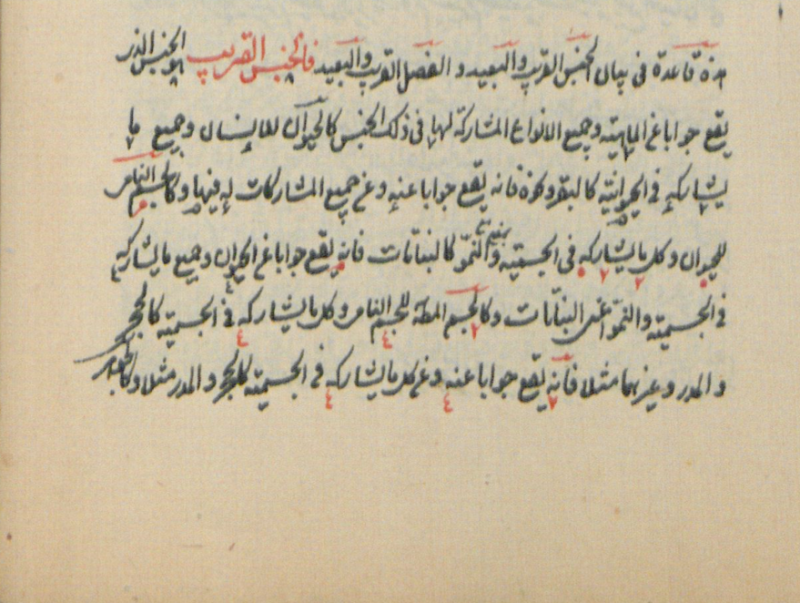 هذه قاعدة في بيان الجنس القريب والبعيد والفصل القريب والبعيد فالجنس القريب هو الجنس الذى
يقع جوابا عن الماهية وجميع الانواع المشاركة لها في ذلك الجنس كالحيوان للانسان وجميع ما
يشاركه في الحيوانية كالبقر ونحوه فانه يقع جوابا عنه وعن جميع المشاركات له فيها وكالجسم النامى
للحيوان وكل ما يشاركه في الجسمية والنمو كالنباتات فانه يقع جوابا عن الحيوان وجميع ما يشاركه
في الجسمية والنمو اعنى النباتات وكالجسم المطلق للجسم النامى وكل ما يشاركه في الجسمية كالحجر
والمدر وغيرهما مثلا فانه يقع جوابا عنه وعن كل ما يشاركه في الجسمية كالحجر والمدر مثلا وكالجوهر